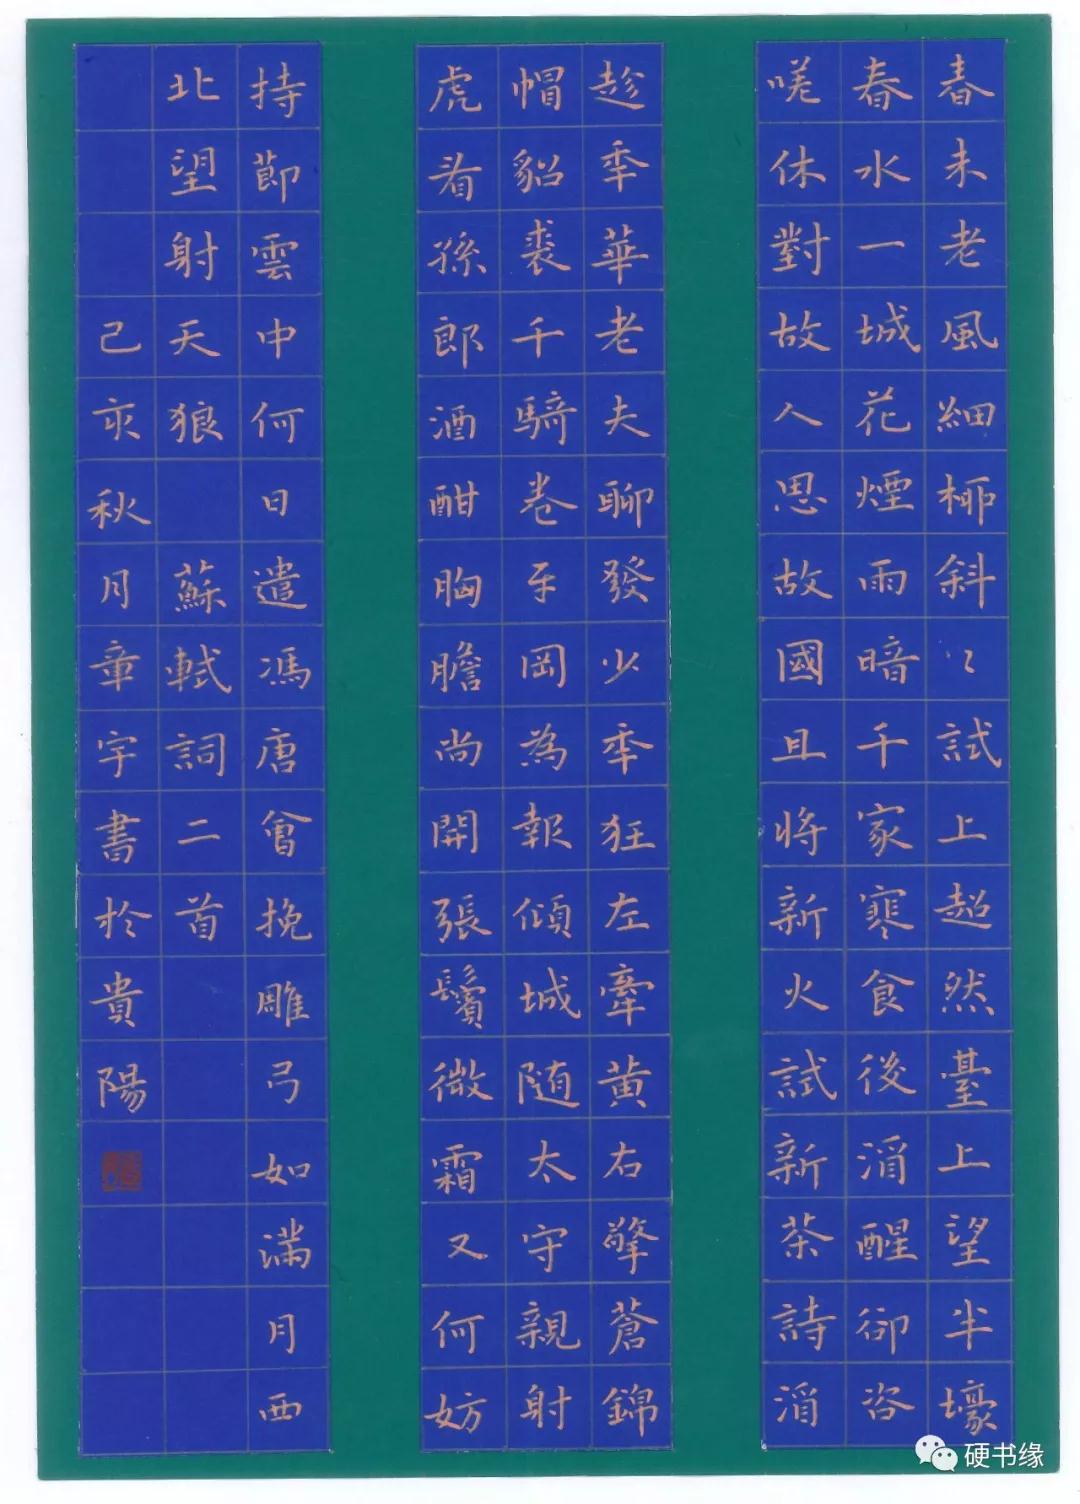 春未老風細柳斜〻試上超然臺上望半壕
春水一城花煙雨暗千家寒食後酒醒卻咨
嗟休對故人思故國且將新火試新茶詩酒
趁年華老夫聊發少年狂左牽黃右擎蒼錦
帽貂裘千騎卷平岡為報傾城随太守親射
虎看孫郎酒酣胸膽尚開張鬢微霜又何妨
持節雲中何日遣馮唐會挽雕弓如滿月西
北望射天狼 蘇軾詞二首
己亥秋月章宇書於貴陽
硬书缘